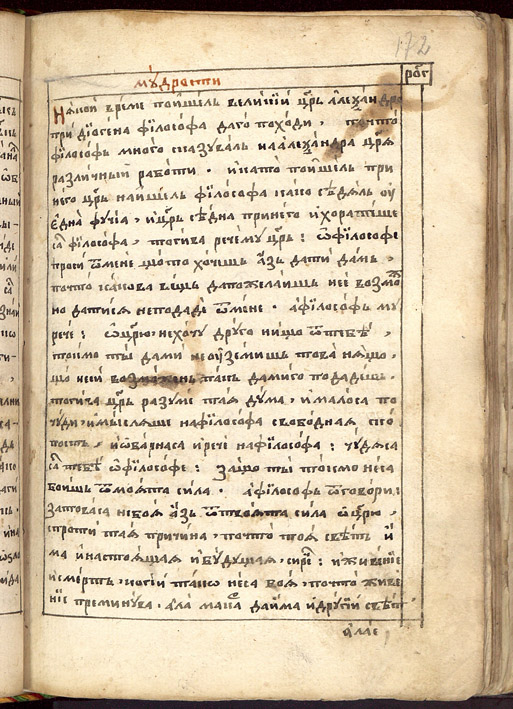 172
рог
мꙋдрости
Някои време поишѣль великїй цр҃ь алеѯандрꙋ
при дїогена фїлософа да го походи, почто
фїлософь много сказуваль на алеѯандра цр҃я
различный работи. и като поишѣль при
него цр҃ь найшѣль фїлософа како сѣдяль оу
една фучїа, и цр҃ь сѣдна при него и хоратише
са фїлософа, тогива рече му цр҃ь: ѽ фїлософе
проси ѿ мене що то хочишь азь да ти дамь,
почто какова вещь да пожелаишь нее возмож
но да ти ся неподаде ѿ мене. а фїлософь му
рече: ѽ царю, не хочу друго нищо ѿ тебѣ,
токмо ти да ми не оуземишь това нящо,
що неси возможень пакь да ми го подадешь.
тогива цр҃ь разуме тая дума, и малоса по
чуди, и мысляше на фїлософа свободная его
пость, и ѡбарнаса и рече на фїлософа: чудяса
са тебѣ ѽ фїлософе: защо ты токмо неса
боишь ѿ моята сила. а фїлософь ѿговори:
затоваса небоя азь ѿ твоята сила ѽ царю,
спроти тая причина, почто тоя свѣть и
ма и настоящая и будущая, сирѣ: и живенїе
и смерть, и отїи тако неса боя, почто живе
нїе преминува. ала мака да има и другїй свѣт
алае